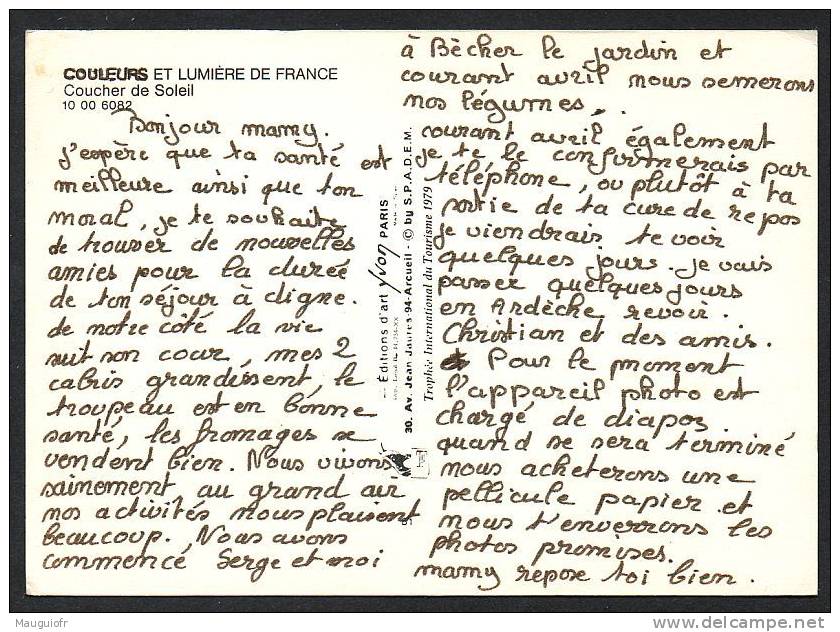 COULEURS ET LUMIÈRE DE FRANCE
Coucher de Soleil
10 00 6082
Bonjour mamy.
j'espère que ta santé est
meilleure ainsi que ton
moral, je te souhaite
de trouver de nouvelles
amies pour la durée
de ton séjour à digne.
de notre côté la vie
suit son cour, mes 2
cabris grandissent, le
troupeau est en bonne
santé, les fromages se
vendent bien. Nous vivons
sainement au grand air
nos activités nous plaisent
beaucoup. Nous avons
commencé Serge et moi
Éditions d'art yvon PARIS
30. Av. Jean Jaurès-94-Arcueil - © by S.P.A.D.E.M.
Trophée International du Tourisme 1979
à Bècher le jardin et
courant avril nous semerons
nos légumes.
courant avril également
je te le confirmerais par
téléphone, ou plutôt à ta
sortie de ta cure de repos
je viendrais te voir
quelques jours. je vais
passer quelques jours
en Ardèche revoir
Christian et des amis.
Pour le moment
l'appareil photo est
chargé de diapos
quand se sera terminé
nous acheterons une
pellicule papier et
nous t'enverrons les
photos promises.
mamy repose toi bien.
Mauguiofr
delcampe.net